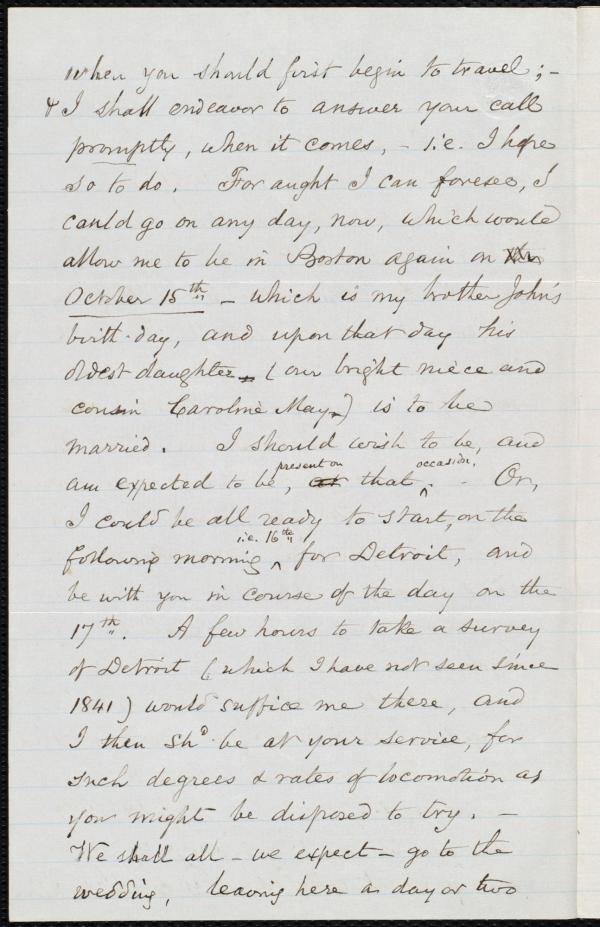 when you should first begin to travel ; -
& I shall endeavor to answer your call
promptly, when it comes, - i.e. I hope
so to do. For aught I can foresee, I
could go on any day, now, which would
allow me to be in Boston again on
October 15th - which is my brother John's
birth-day, and upon that day his
oldest daughter (our bright niece and
cousin Caroline May) is to be
married. I should wish to be, and
am expected to be, present on that occasion. - Or,
I could be all ready to start, on the
following morning i.e. 16th, for Detroit, and
be with you in course of the day on the
17th. A few hours to take a survey
of Detroit (which I have not seen since
1841) would suffice me there, and
I then shd. be at your service, for
such degrees & rates of locomotion as
you might be disposed to try. -
We shall all - we expect - go to the
wedding, leaving here a day or two